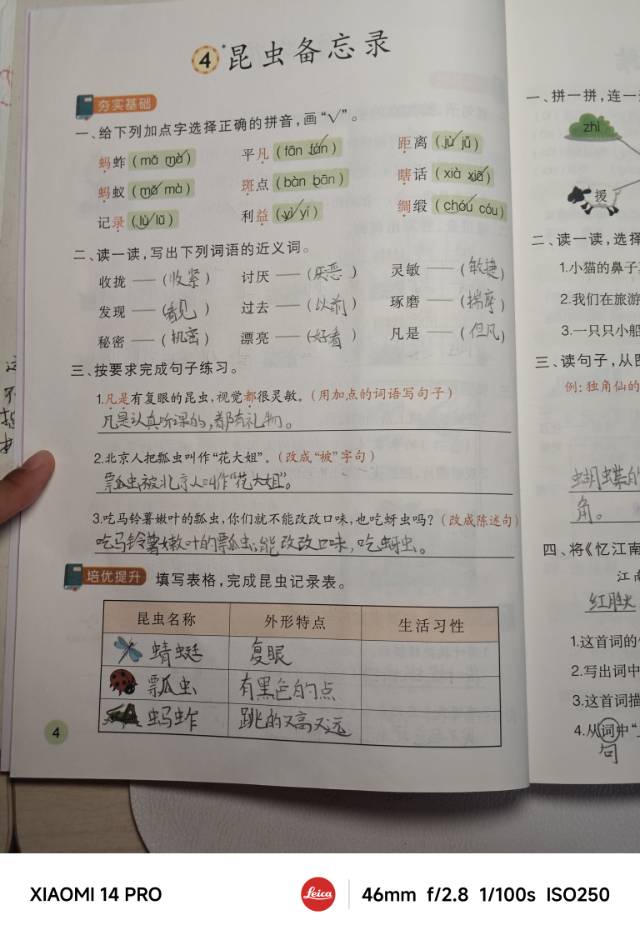 4 昆虫备忘录
夯实基础
一、给下列加点字选择正确的拼音,画“√”。
蚂蚱(mǎ mà) 平凡(fān fán) 距离(jù jǔ)
蚂蚁(mǎ mà) 斑点(bàn bān) 瞎话(xià xiā)
记录(lù lǜ) 利益(yì yí) 绸缎(chóu cóu)
二、读一读,写出下列词语的近义词。
收拢——(收紧) 讨厌——(厌恶) 灵敏——(敏捷)
发现——(看见) 过去——(以前) 琢磨——(揣摩)
秘密——(机密) 漂亮——(好看) 凡是——(但凡)
三、按要求完成句子练习。
1.凡是有复眼的昆虫,视觉都很灵敏。(用加点的词语写句子)
凡是认真听课的,都有礼物。
2.北京人把瓢虫叫作“花大姐”。(改成“被”字句)
瓢虫被北京人叫作“花大姐”。
3.吃马铃薯嫩叶的瓢虫,你们就不能改改口味,也吃蚜虫吗?(改成陈述句)
吃马铃薯嫩叶的瓢虫,能改改口味,吃蚜虫。
培优提升 填写表格,完成昆虫记录表。
昆虫名称 外形特点 生活习性
蜻蜓 复眼
瓢虫 有黑色的点
蚂蚱 跳的又高又远
4
一、拼一拼,连一
zhī
援
二、读一读,选择
1.小猫的鼻子
2.我们在旅游
3.一只只小船
三、读句子,从
例:独角仙的
蝴蝶的
角。
四、将《忆江南
江南
红胜火
1.这首词的
2.写出词中
3.这首词描
4.从词中“
句
XIAOMI 14 PRO Leica 46mm f/2.8 1/100s ISO250